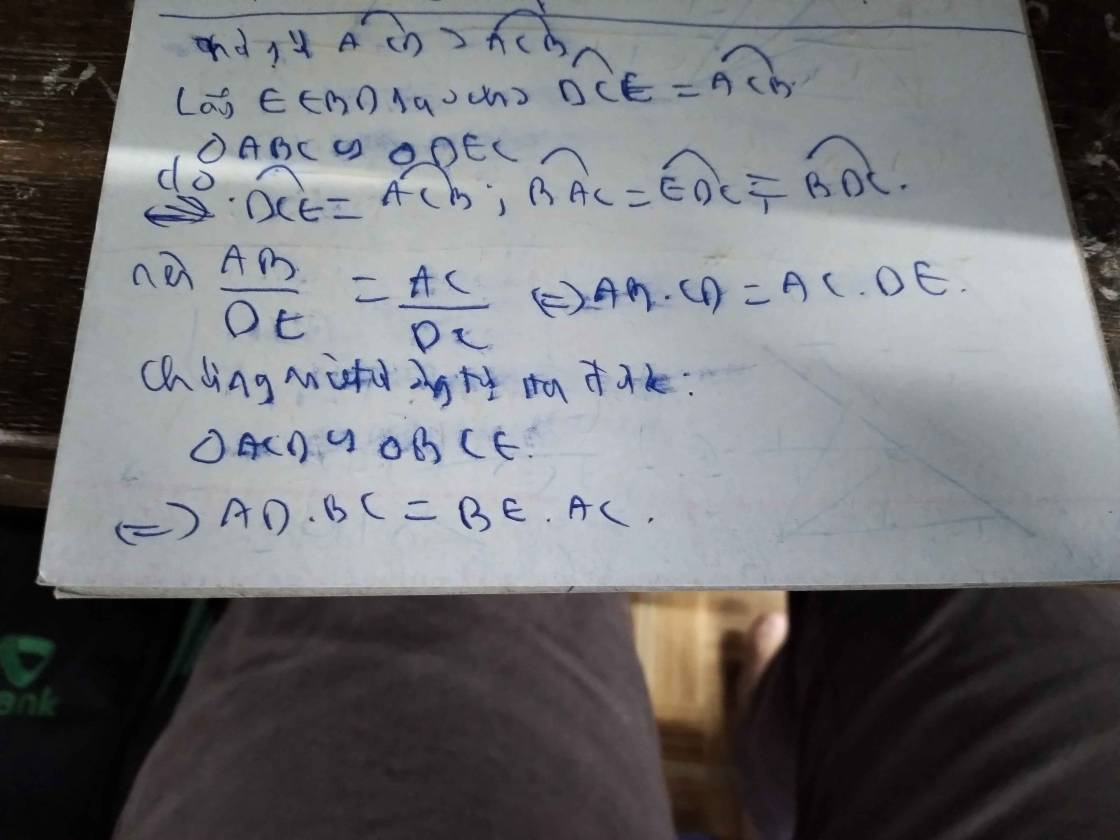 ACD > ACB
Lấy E ∈ BD sao cho DCE = ACB
△ABC ∽ △DEC
do
DCE = ACB; BAC = EDC = BDC.
nên AB/DE = AC/DC ⇔ AB.CD = AC.DE.
Chứng minh tương tự ta được:
△ACD ∽ △BCE.
⇔ AD.BC = BE.AC.
ank